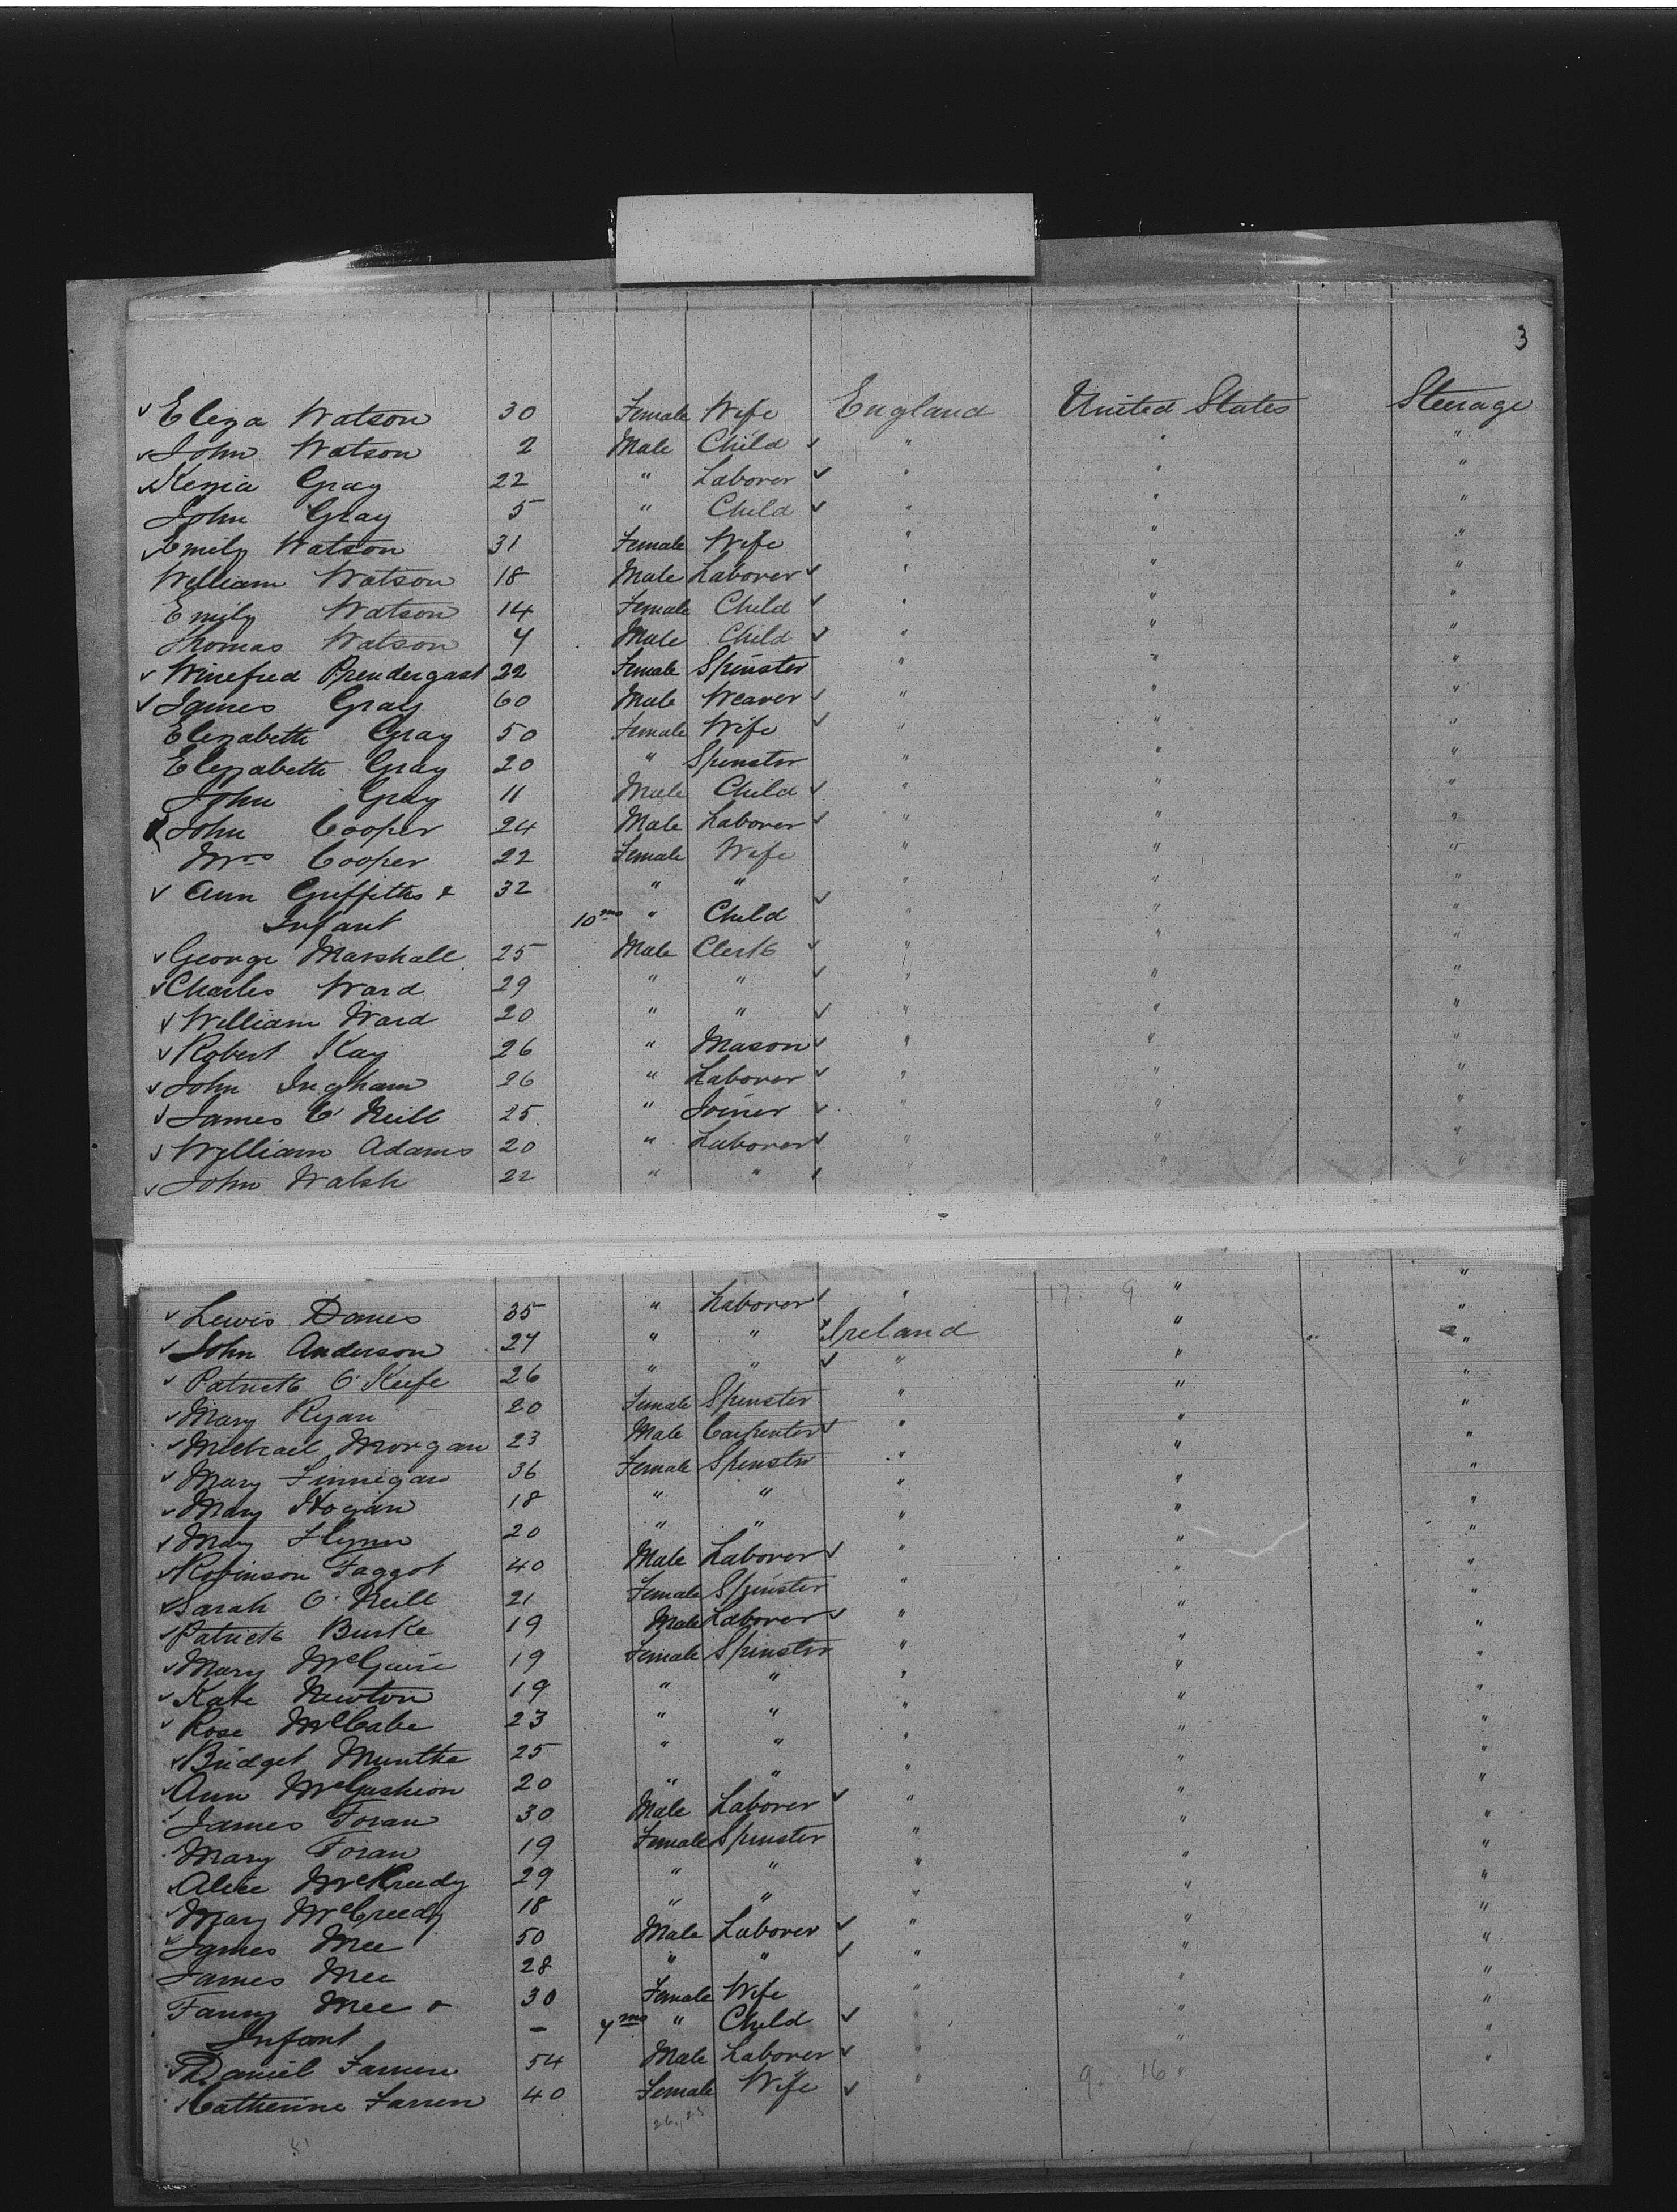 3
Eliza Watson 30 Female Wife England United States Steerage
John Watson 2 Male Child " " "
Kezia Gray 22 " Laborer " " "
John Gray 5 " Child " " "
Emily Watson 31 Female Wife " " "
William Watson 18 Male Laborer " " "
Emily Watson 14 Female Child " " "
Thomas Watson 4 Male Child " " "
Winefred Prendergast 22 Female Spinster " " "
James Gray 60 Male Weaver " " "
Elizabeth Gray 50 Female Wife " " "
Elizabeth Gray 20 " Spinster " " "
John Gray 11 Male Child " " "
John Cooper 24 Male Laborer " " "
Mrs Cooper 22 Female Wife " " "
Ann Griffiths & 32 " " " " "
Infant 10 mos " Child " " "
George Marshall 25 Male Clerk " " "
Charles Ward 29 " " " " "
William Ward 20 " " " " "
Robert Kay 26 " Mason " " "
John Ingham 26 " Laborer " " "
James O'Neill 25 " Joiner " " "
William Adams 20 " Laborer " " "
John Walsh 22 " " " " "
Lewis Danes 35 " Laborer " 17 9 " "
John Anderson 27 " " Ireland " "
Patrick O'Keefe 26 " " " " "
Mary Ryan 20 Female Spinster " " "
Michael Morgan 23 Male Carpenter " " "
Mary Finnigan 36 Female Spinster " " "
Mary Hogan 18 " " " " "
Mary Flynn 20 " " " " "
Robinson Faggot 40 Male Laborer " " "
Sarah O'Neill 21 Female Spinster " " "
Patrick Burke 19 Male Laborer " " "
Mary McGuire 19 Female Spinster " " "
Kate Newton 19 " " " " "
Rose McCabe 23 " " " " "
Bridget Muntha 25 " " " " "
Ann McGashion 20 " " " " "
James Foran 30 Male Laborer " " "
Mary Foran 19 Female Spinster " " "
Alice McKreedy 29 " " " " "
Mary McCreedy 18 " " " " "
James Mee 50 Male Laborer " " "
James Mee 28 " " " " "
Fanny Mee & 30 Female Wife " " "
Infant - 4 mos " Child " " "
Daniel Farren 54 Male Laborer " " "
Catherine Farren 40 Female Wife " 9. 16 " "
26.25